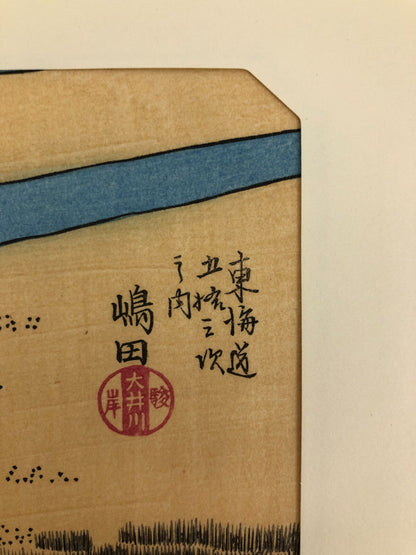 東海道
五拾三次
之内
嶋田
大井川
駿岸